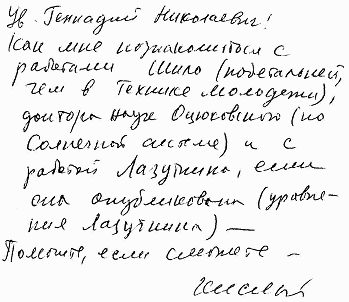 Ув. Геннадий Николаевич!
Как мне познакомиться с
работами Шило (подетальней,
чем в Технике Молодежи),
доктора наук Оцюковского (по
Солнечной системе) и с
работой Лазуткина, если
она опубликована (уравне-
ния Лазуткина) —
Помогите, если сможете —